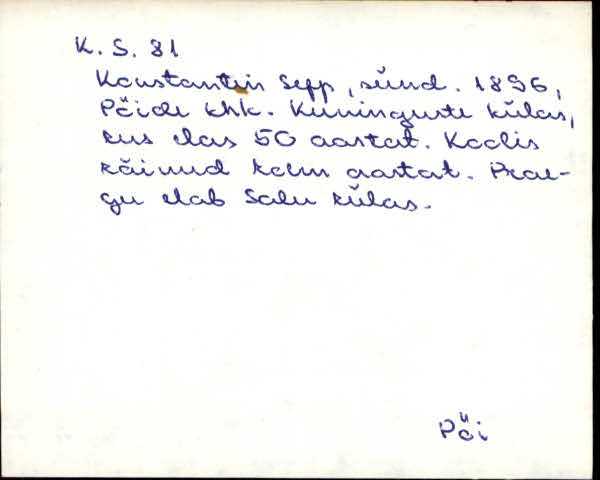 K. S. 81
Konstantin Sepp, sünd. 1896,
Pöide khk. Kuninguste külas,
kus elas 50 aastat. Koolis
käinud kolm aastat. Prae-
gu elab Salu külas.
Pöi